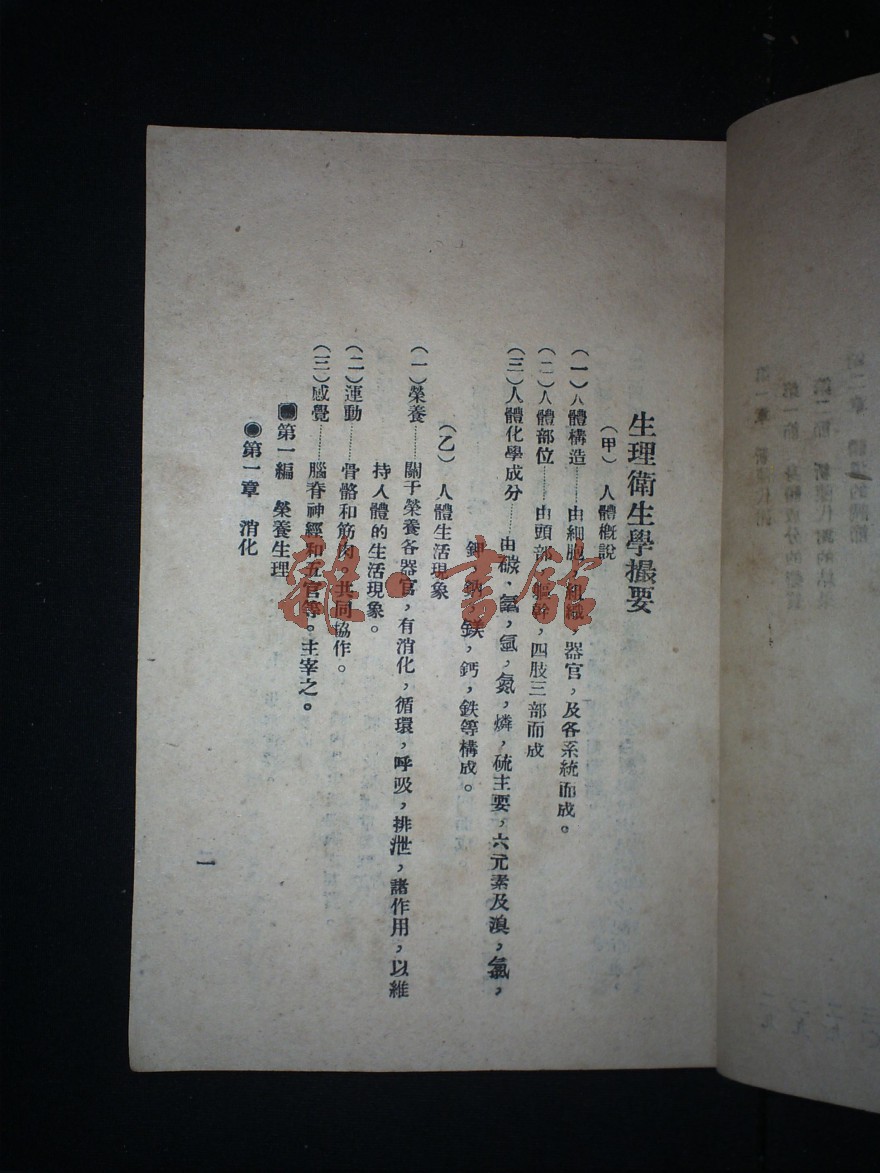 生理衛生學撮要
（甲）人體概說
（一）人體構造……由細胞，組織，器官，及各系統而成。
（二）人體部位……由頭部，軀幹，四肢三部而成
（三）人體化學成分……由碳，氫，氮，燐，硫主要，六元素及溴，氯，
鉀，鈉，鎂，鈣，鉄等構成。
（乙）人體生活現象
（一）榮養……關于榮養各器官，有消化，循環，呼吸，排泄，諸作用，以維
持人體的生活現象。
（二）運動……骨骼和筋肉，共同協作。
（三）感覺……腦脊神經和五官等。主宰之。
第一編 榮養生理
第一章 消化
一
雜·書館